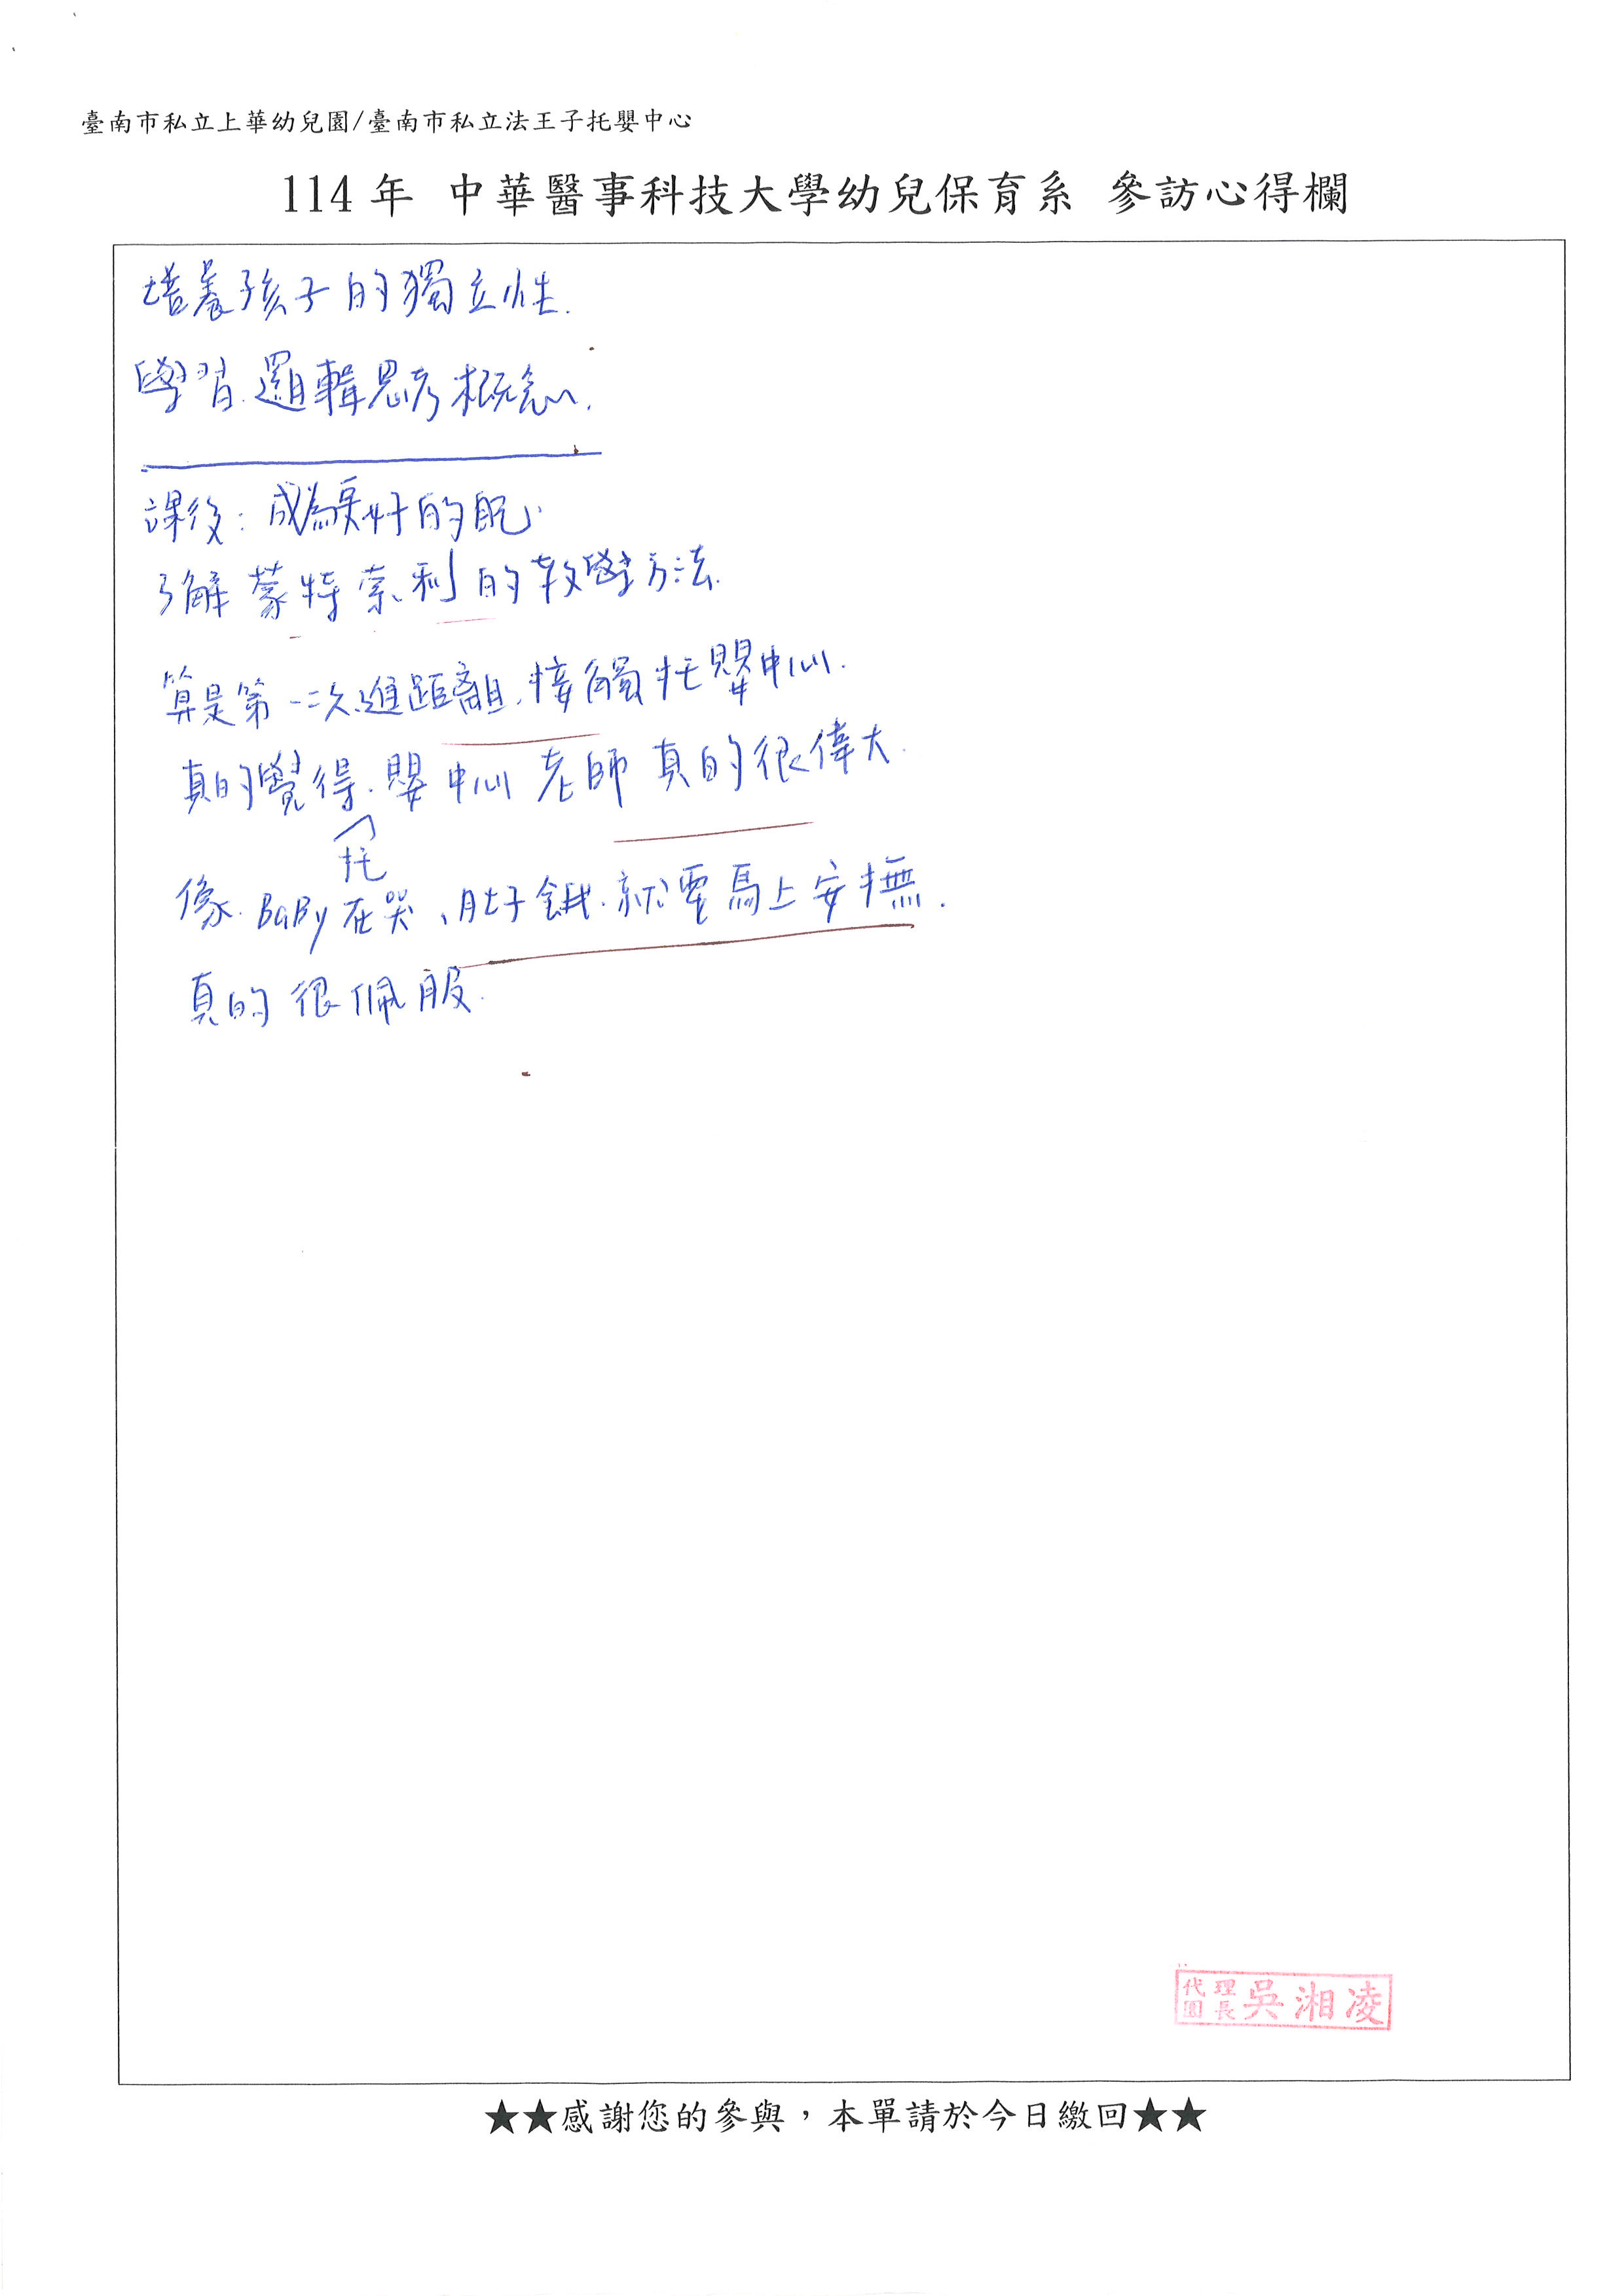 臺南市私立上華幼兒園/臺南市私立法王子托嬰中心
114 年 中華醫事科技大學幼兒保育系 參訪心得欄
培養孩子的獨立性.
學習.邏輯思考概念.
課後：成為更好的配
了解蒙特索利的教學方法.
算是第一次進距離.接觸托嬰中心.
真的覺得.托嬰中心老師真的很偉大.
像.BaBy在哭、肚子餓.就要馬上安撫.
真的很佩服.
代理園長 吳湘凌
★★感謝您的參與，本單請於今日繳回★★